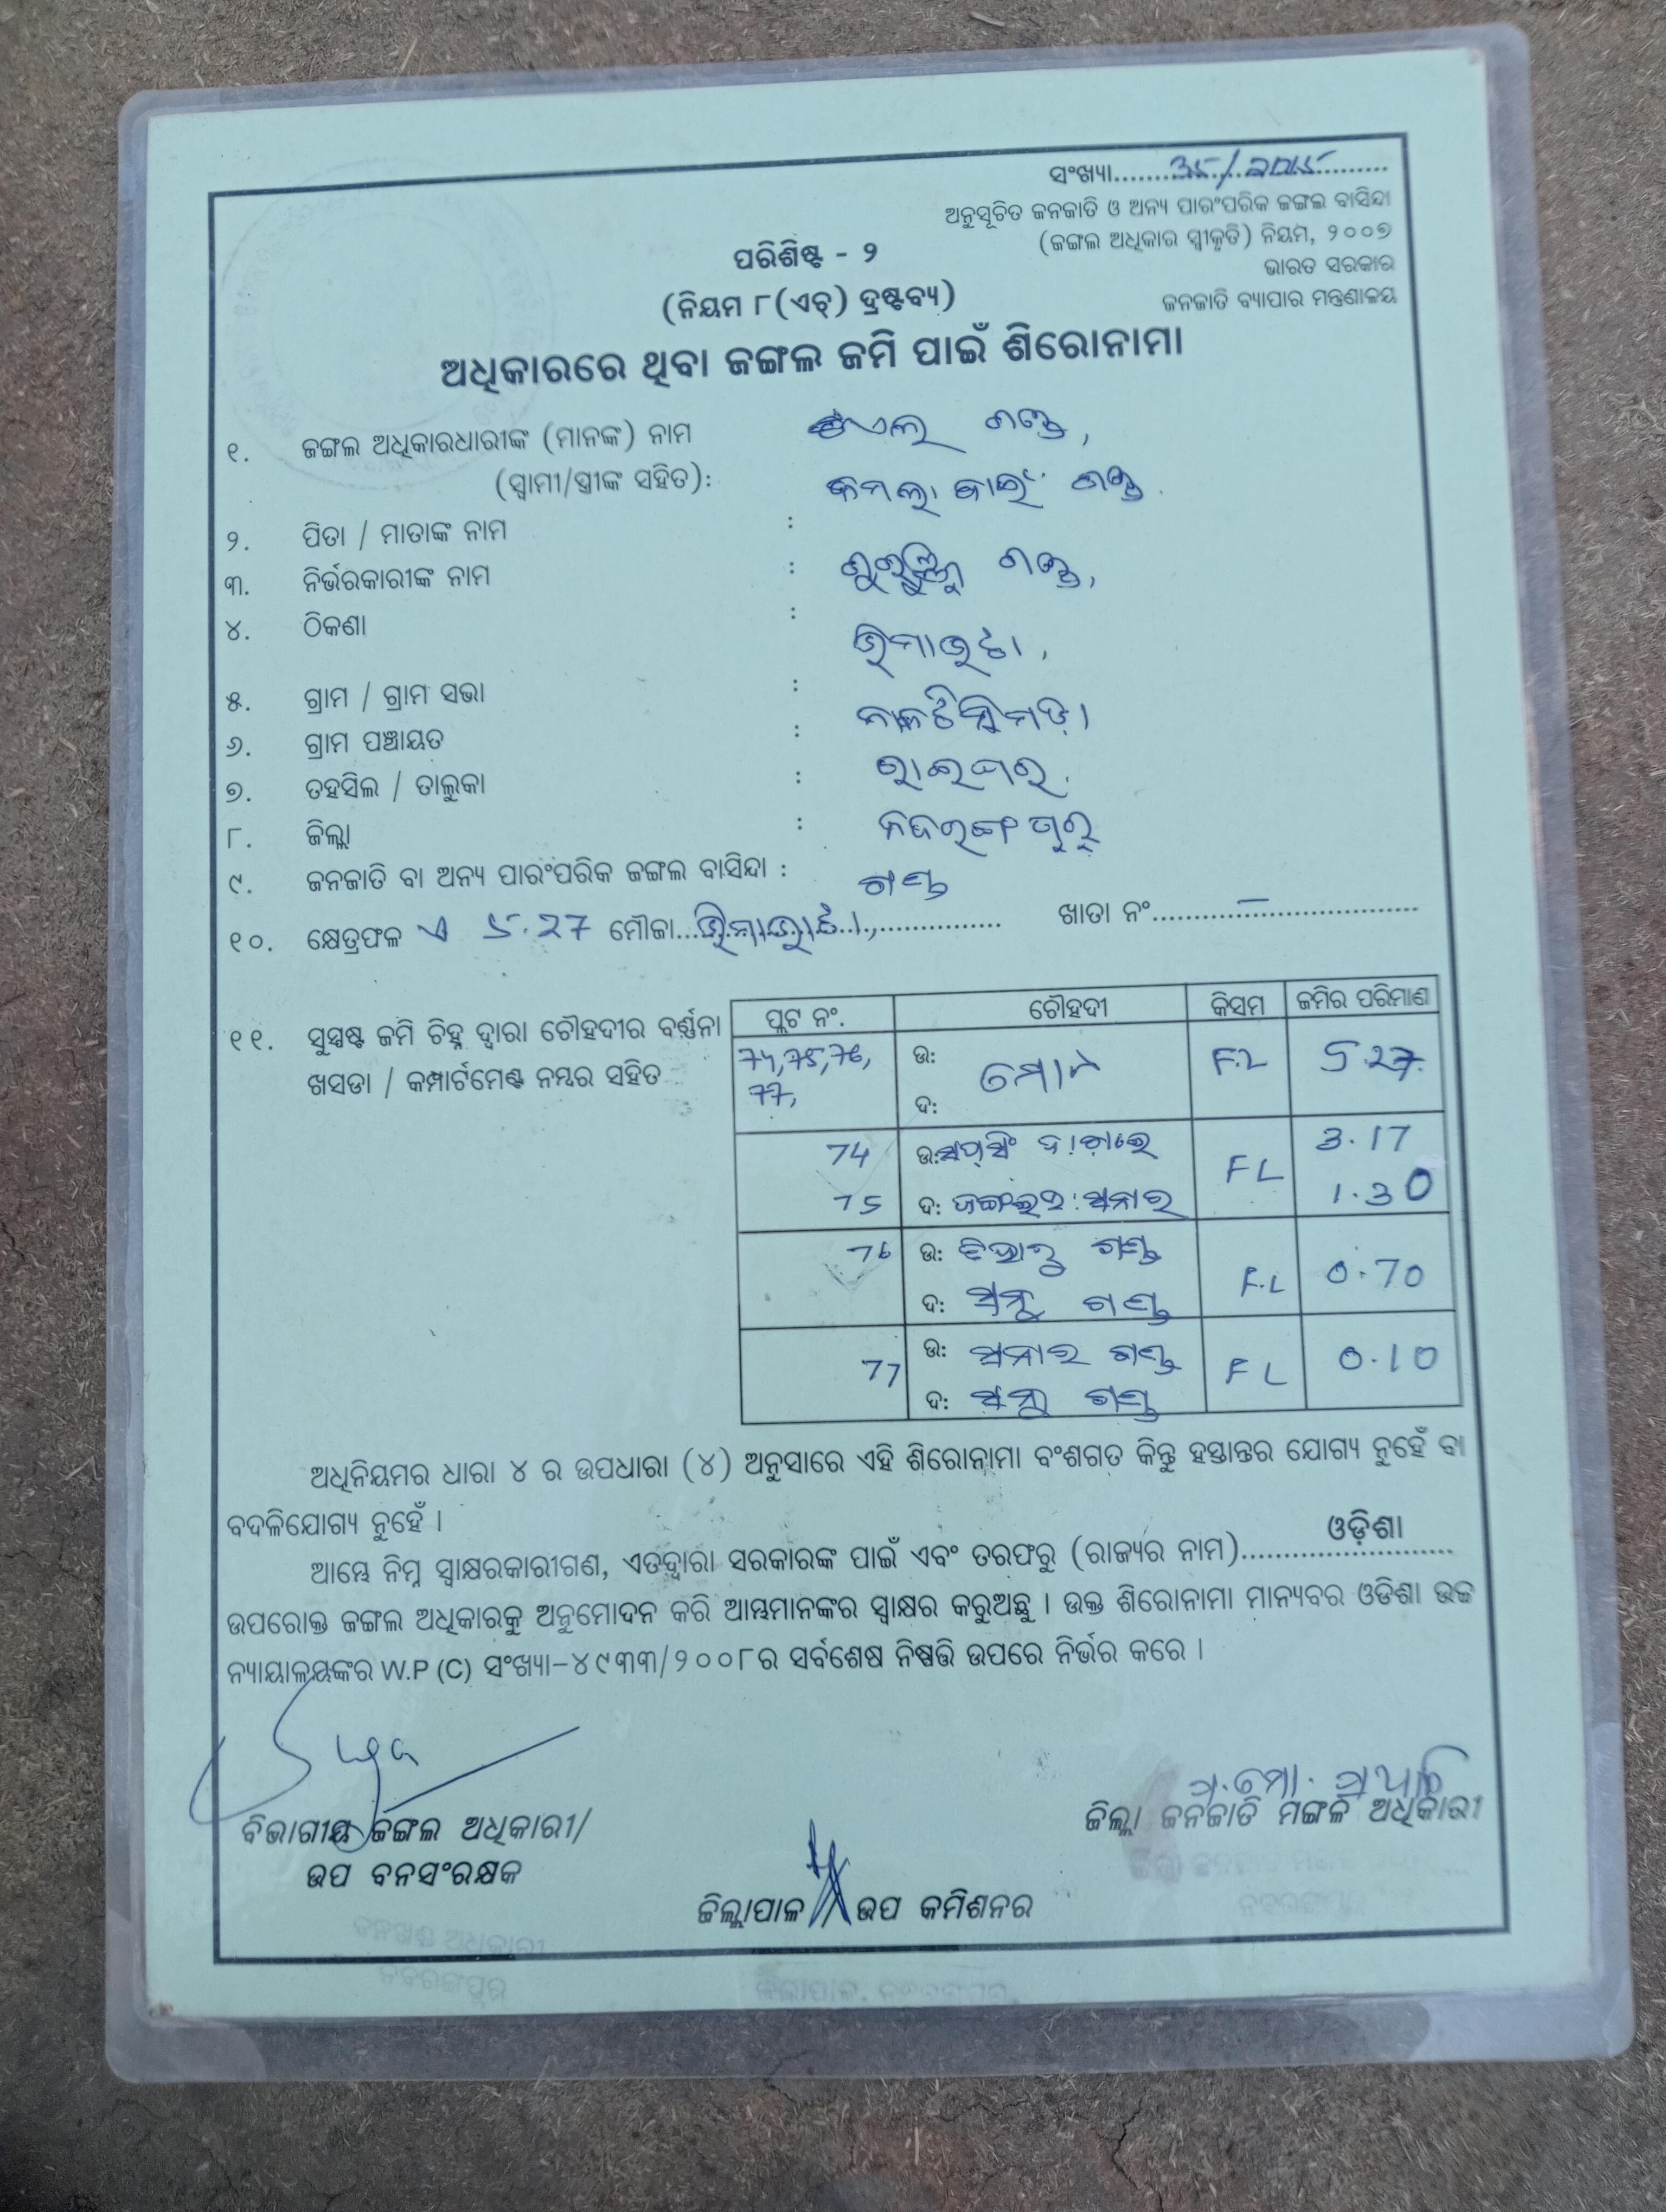 ସଂଖ୍ୟା
ଅନୁସୂଚିତ ଜନଜାତି ଓ ଅନ୍ୟ ପାରଂପରିକ ଜଙ୍ଗଲ ବାସିନ୍ଦା
(ଜଙ୍ଗଲ ଅଧିକାର ସ୍ୱୀକୃତି) ନିୟମ, ୨୦୦୭
ଭାରତ ସରକାର
ଜନଜାତି ବ୍ୟାପାର ମନ୍ତ୍ରଣାଳୟ
ପରିଶିଷ୍ଟ - ୨
(ନିୟମ ୮(ଏଚ୍) ଦ୍ରଷ୍ଟବ୍ୟ)
ଅଧିକାରରେ ଥିବା ଜଙ୍ଗଲ ଜମି ପାଇଁ ଶିରୋନାମା
୧. ଜଙ୍ଗଲ ଅଧିକାରଧାରୀଙ୍କ (ମାନଙ୍କ) ନାମ ଗଣ୍ଡ,
(ସ୍ୱାମୀ/ସ୍ତ୍ରୀଙ୍କ ସହିତ): କମଳା ବାଈ ଗଣ୍ଡ
୨. ପିତା / ମାତାଙ୍କ ନାମ : ଗଣ୍ଡ,
୩. ନିର୍ଭରକାରୀଙ୍କ ନାମ :
୪. ଠିକଣା :
୫. ଗ୍ରାମ / ଗ୍ରାମ ସଭା :
୬. ଗ୍ରାମ ପଞ୍ଚାୟତ :
୭. ତହସିଲ / ତାଲୁକା : ରାଇଘର
୮. ଜିଲ୍ଲା : ନବରଙ୍ଗପୁର
୯. ଜନଜାତି ବା ଅନ୍ୟ ପାରଂପରିକ ଜଙ୍ଗଲ ବାସିନ୍ଦା : ଗଣ୍ଡ
୧୦. କ୍ଷେତ୍ରଫଳ ଏ 5.27 ମୌଜା ଖାତା ନଂ. –
୧୧. ସୁସ୍ପଷ୍ଟ ଜମି ଚିହ୍ନ ଦ୍ୱାରା ଚୌହଦୀର ବର୍ଣ୍ଣନା
ଖସଡା / କମ୍ପାର୍ଟମେଣ୍ଟ ନମ୍ବର ସହିତ
ପ୍ଲଟ ନଂ. ଚୌହଦୀ କିସମ ଜମିର ପରିମାଣ
74,75,76, ଉ: F.L 5.27
77, ଦ: ମୋଟ
74 ଉ: FL 3.17
75 ଦ: 1.30
76 ଉ: ଗଣ୍ଡ F.L 0.70
ଦ: ଗଣ୍ଡ
77 ଉ: ଗଣ୍ଡ FL 0.10
ଦ: ଗଣ୍ଡ
ଅଧିନିୟମର ଧାରା ୪ ର ଉପଧାରା (୪) ଅନୁସାରେ ଏହି ଶିରୋନାମା ବଂଶଗତ କିନ୍ତୁ ହସ୍ତାନ୍ତର ଯୋଗ୍ୟ ନୁହେଁ ବା
ବଦଳିଯୋଗ୍ୟ ନୁହେଁ ।
ଆମ୍ଭେ ନିମ୍ନ ସ୍ୱାକ୍ଷରକାରୀଗଣ, ଏତଦ୍ୱାରା ସରକାରଙ୍କ ପାଇଁ ଏବଂ ତରଫରୁ (ରାଜ୍ୟର ନାମ) ଓଡ଼ିଶା
ଉପରୋକ୍ତ ଜଙ୍ଗଲ ଅଧିକାରକୁ ଅନୁମୋଦନ କରି ଆମ୍ଭମାନଙ୍କର ସ୍ୱାକ୍ଷର କରୁଅଛୁ । ଉକ୍ତ ଶିରୋନାମା ମାନ୍ୟବର ଓଡିଶା ଉଚ୍ଚ
ନ୍ୟାୟାଳୟଙ୍କର W.P (C) ସଂଖ୍ୟା-୪୯୩୩/୨୦୦୮ର ସର୍ବଶେଷ ନିଷ୍ପତ୍ତି ଉପରେ ନିର୍ଭର କରେ ।
ବିଭାଗୀୟ ଜଙ୍ଗଲ ଅଧିକାରୀ/
ଉପ ବନସଂରକ୍ଷକ
ଜିଲ୍ଲା ଜନଜାତି ମଙ୍ଗଳ ଅଧିକାରୀ
ଜିଲ୍ଲାପାଳ / ଉପ କମିଶନର
ବନଖଣ୍ଡ ଅଧିକାରୀ
ନବରଙ୍ଗପୁର